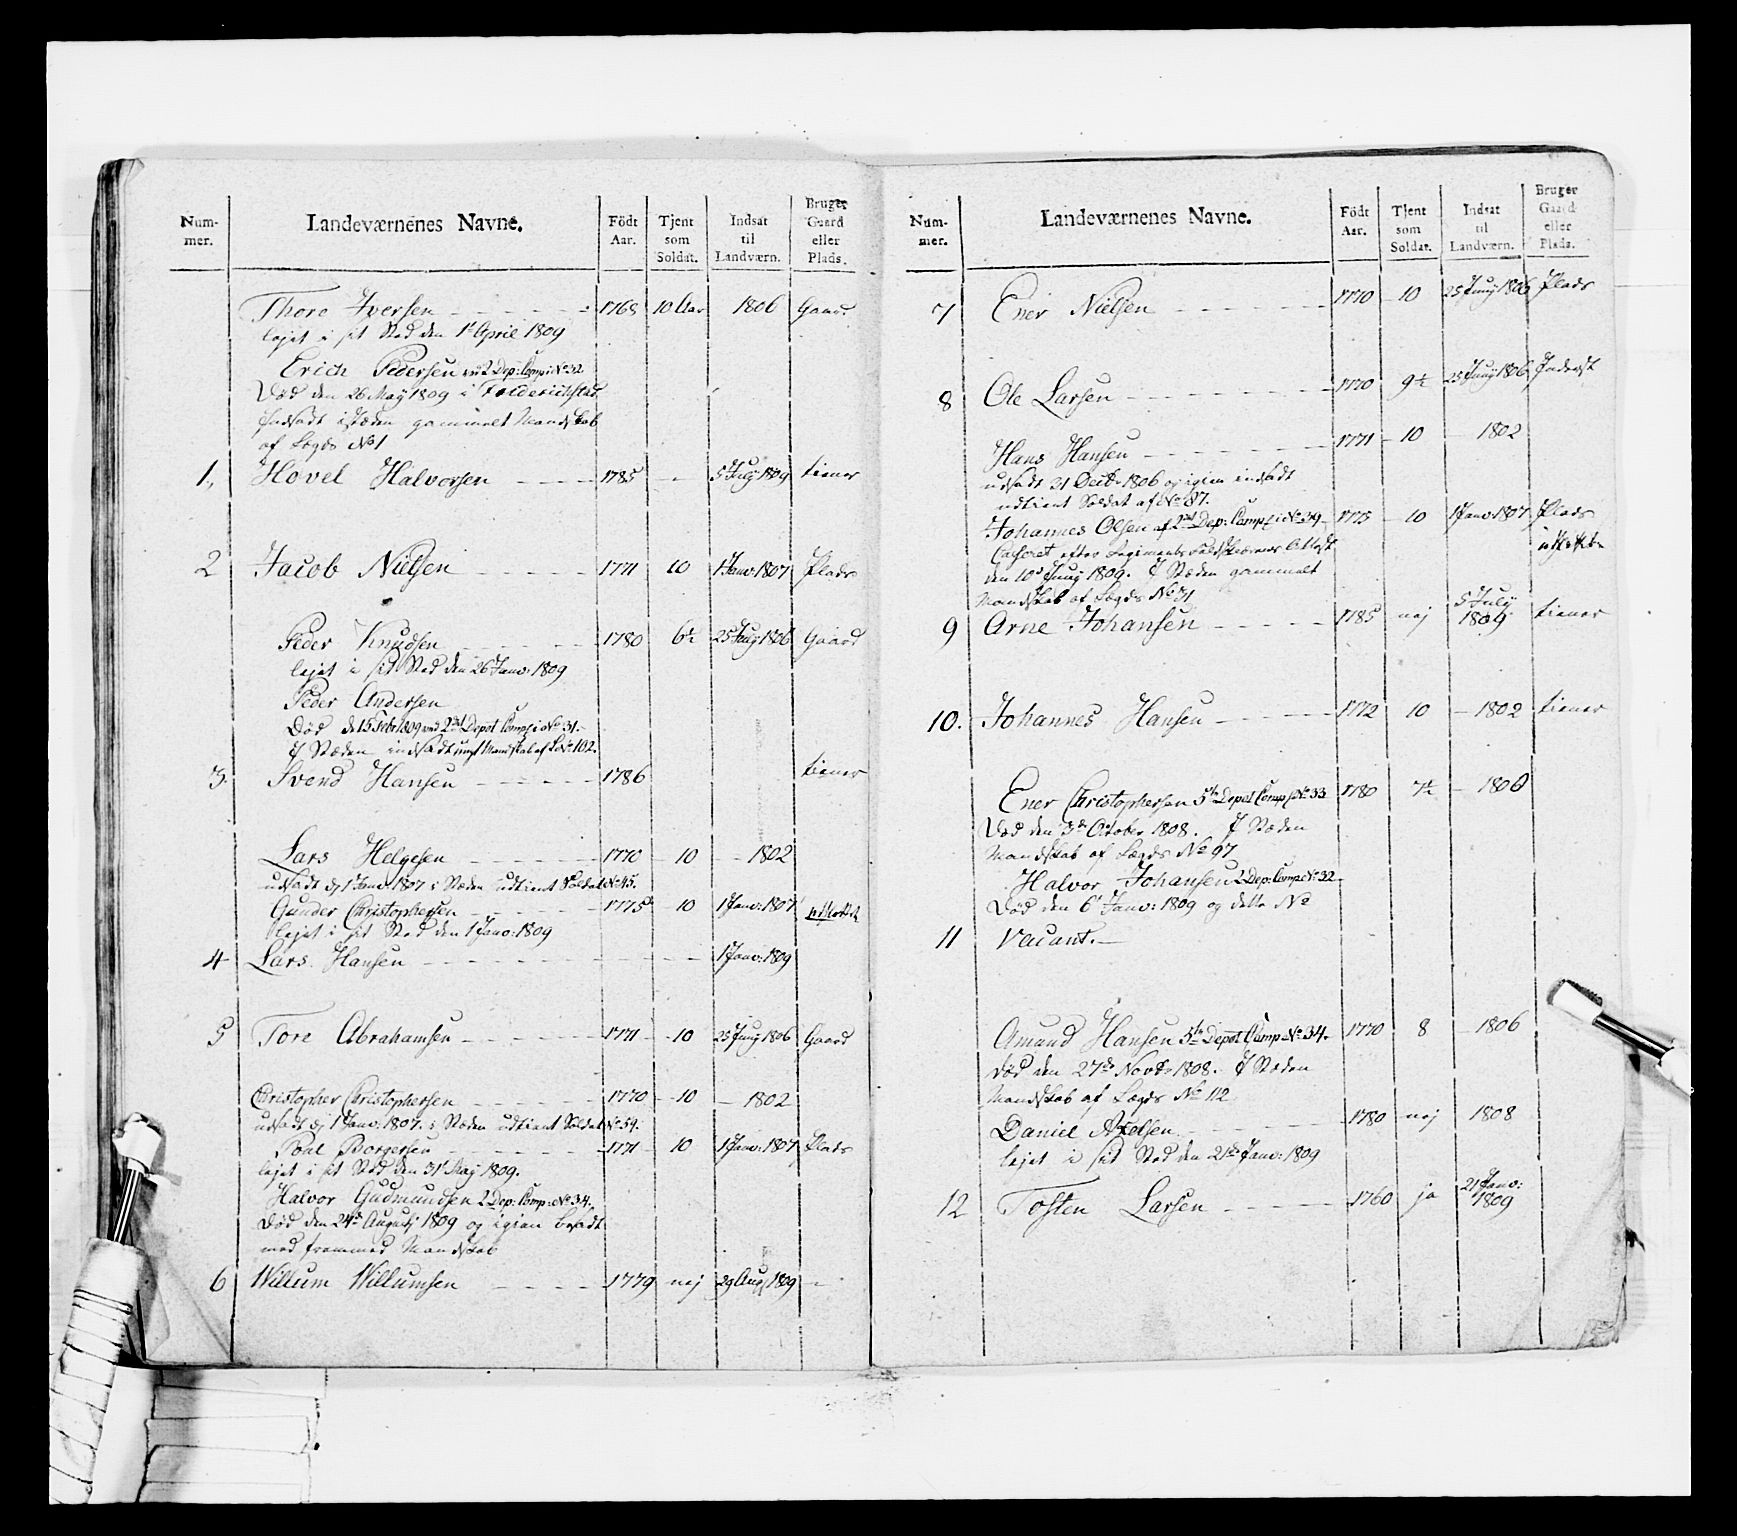 Num-
mer.
Landeværnenes Navne.
Födt
Aar.
Tjent
som
Soldat.
Indsat
til
Landværn.
Bruger
Gaard
eller
Plads.
Thore Iversen 1768 10 Aar 1806 Gaard
lejet i sit Sted den 1t April 1809
Erich Pedersen 2 Dep: Comp: No 32
Död den 26 May 1809 i Friderichstad
Indsadt istæden gammelt Mandskab
af Lægds No 1
1. Hovel Halvorsen 1785 5 July 1809 tiener
2 Jacob Nielsen 1771 10 1 Janv: 1807 Plads
Peder Knudsen 1780 6½ 25 Juny 1806 Gaard
lejet i sit Sted den 26 Janv: 1809
Peder Andersen
Död d 15 Febr 1809 ved 2det Depot Comp: No 31.
I Stæden indsadt ungt Mandskab af No 102.
3. Svend Hansen 1786 tiener
Lars Helgesen 1770 10 1802
udsadt d 1 Janv: 1807 i Stæden udtient Soldat No 45.
Gunder Christophersen 1775 10 1 Janv: 1807
lejet i sit Sted den 1 Janv: 1809
4 Lars Hansen 1 Janv: 1809
5 Tore Abrahamsen 1771 10 25 Juny 1806 Gaard
Christopher Christophersen 1770 10 1802
udsadt d 1 Janv: 1807. i Stæden udtient Soldat No 54.
Poul Borgersen 1771 10 1 Janv: 1807 Plads
lejet i sit Sted den 31 May 1809.
Halvor Gudmundsen 2 Dep: Comp: No 34.
Död den 24de Augustj 1809 og igien besadt
med fremmed Mandskab
6 Willum Willumsen 1779 nej 29 Aug 1809
Num-
mer.
Landeværnenes Navne.
Födt
Aar.
Tjent
som
Soldat.
Indsat
til
Landværn.
Bruger
Gaard
eller
Plads.
7 Ener Nielsen 1770 10 25 Juny 1806 Plads
8 Ole Larsen 1770 9½ 25 Juny 1806 Inderst
Hans Hansen 1771 10 1802
udsadt 31 Decbr 1806 og igien indsadt
udtient Soldat af No 87.
Johannes Olsen af 2det Dep: Comp: No 39 1775 10 1 Janv: 1807 Plads
Casseret efter Regiments Feldskiærens Attest
den 10de Juny 1809. I Stæden gammelt
Mandskab af Lægds No 31
9 Arne Johansen 1785 nej 5 July 1809 tiener
10. Johannes Hansen 1772 10 1802 tiener
Ener Christophersen 5te Depot Comp No 33 1780 7½ 1806
Död den 3de October 1808. I Stæden
Mandskab af Lægds No 97
Halvor Johansen 2 Dep: Comp: No 32
Död den 6t Janv: 1809 og dette No
11 Vacant.
Amund Hansen 5te Depot Comp No 34. 1770 8 1806
död den 27de Novbr 1808. I Stæden
Mandskab af Lægds No 112
Daniel Axelsen 1780 nej 1808
lejet i sit Sted den 21de Janv: 1809
12 Tosten Larsen 1760 ja 21 Janv: 1809